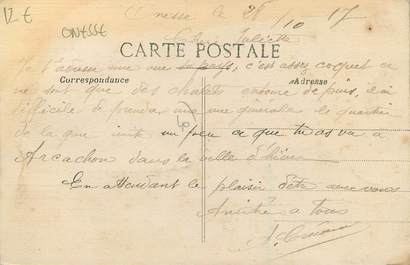 12 € ONESSE
Onesse le 26/10/17
Chère Juliette
CARTE POSTALE
Je t'adresse une vue du pays, c'est assez coquet ce
Correspondance Adresse
ne sont que des chalets entouré de pins, il est
difficile de prendre une vue générale le quartier
de la gare imite un peu ce que tu as vu a
Arcachon dans la ville d'hiver
En attendant le plaisir d'être avec vous
Amitié a tous